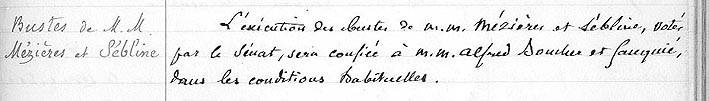 Bustes de M. M.
Mézières et Sébline
L'éxécution des bustes de M. M. Mézières et Sébline, votés
par le Sénat, sera confiée à M. M. Alfred Boucher et Gauquié,
dans les conditions habituelles.